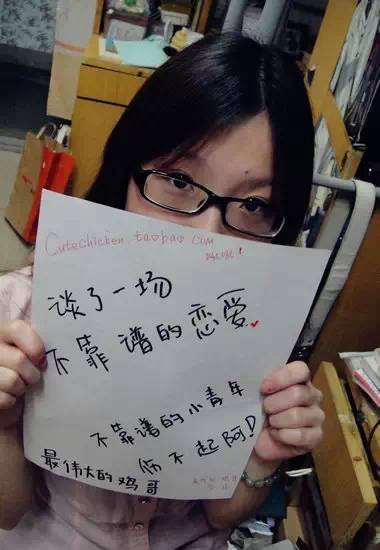 Cutechicken.taobao.com
谈了一场
不靠谱的恋爱
不靠谱的小青年
伤不起阿D
最伟大的鸡哥